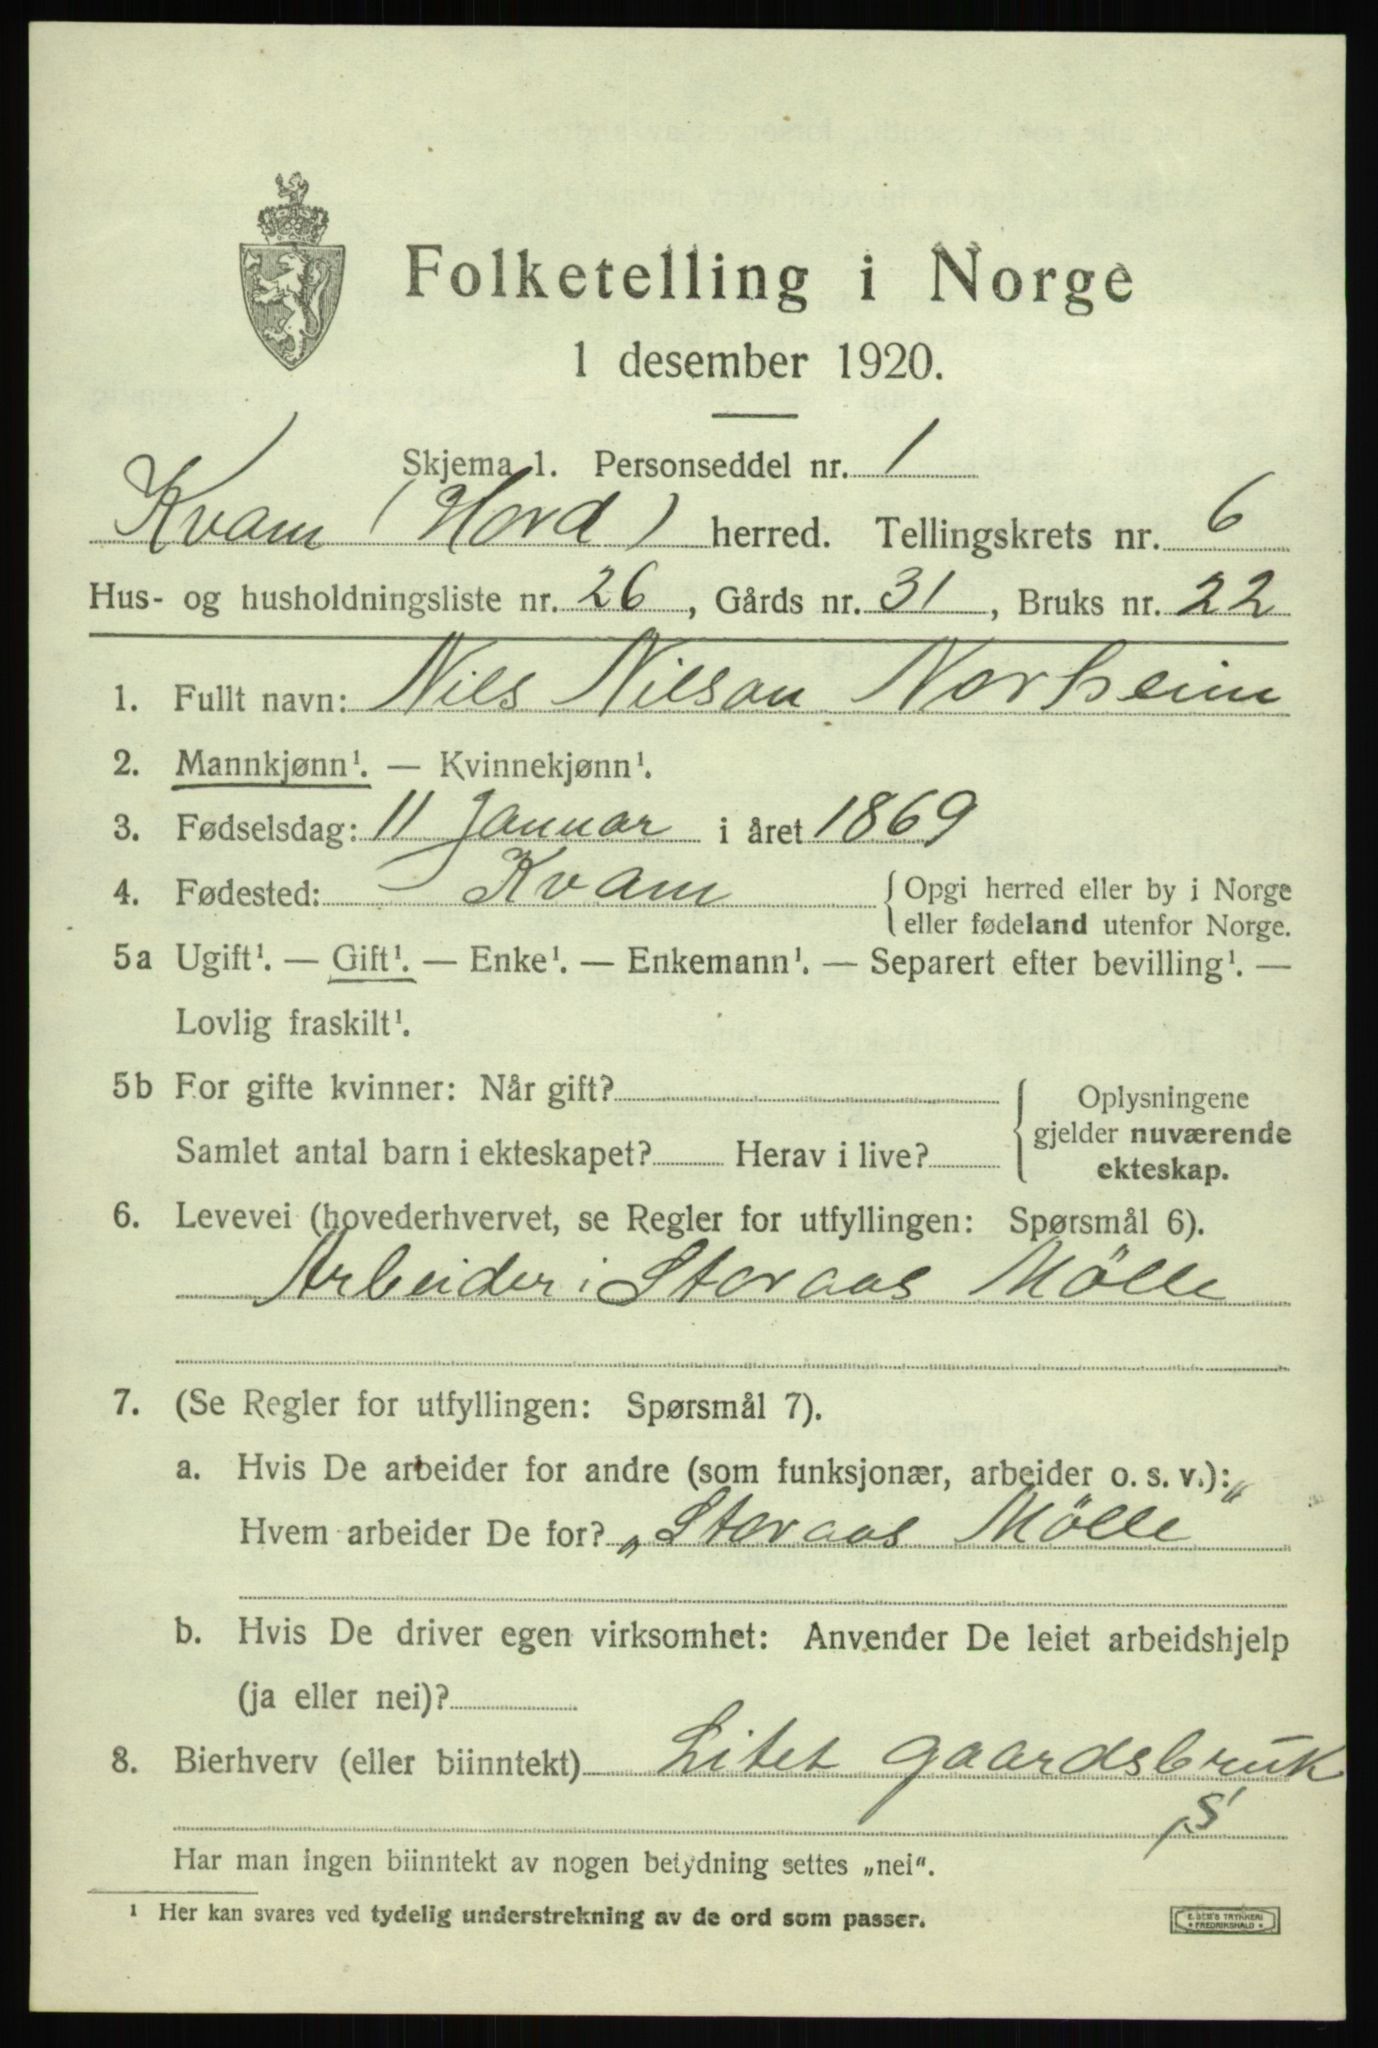 Folketelling i Norge
1 desember 1920.
Skjema 1. Personseddel nr. 1
Kvam (Hord) herred. Tellingskrets nr. 6
Hus- og husholdningsliste nr. 26, Gårds nr. 31, Bruks nr. 22
1. Fullt navn: Nils Nilson Norheim
2. Mannkjønn¹. — Kvinnekjønn¹.
3. Fødselsdag: 11 Januar i året 1869
4. Fødested: Kvam { Opgi herred eller by i Norge
eller fødeland utenfor Norge.
5a Ugift¹. — Gift¹. — Enke¹. — Enkemann¹. — Separert efter bevilling¹. —
Lovlig fraskilt¹.
5b For gifte kvinner: Når gift?
Samlet antal barn i ekteskapet? Herav i live?
Oplysningene
gjelder nuværende
ekteskap.
6. Levevei (hovederhvervet, se Regler for utfyllingen: Spørsmål 6).
Arbeider i Storaas Mölle
7. (Se Regler for utfyllingen: Spørsmål 7).
a. Hvis De arbeider for andre (som funksjonær, arbeider o. s. v.):
Hvem arbeider De for? „Storaas Mölle"
b. Hvis De driver egen virksomhet: Anvender De leiet arbeidshjelp
(ja eller nei)?
8. Bierhverv (eller biinntekt) Litet gaardsbruk
S
Har man ingen biinntekt av nogen betydning settes „nei".
¹ Her kan svares ved tydelig understrekning av de ord som passer.
E. SEM'S TRYKKERI
FREDRIKSHALD